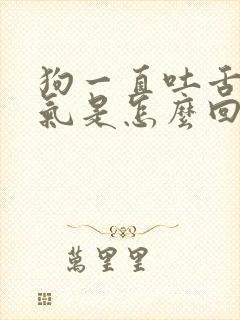 狗一直吐舌
氣是怎麼回
萬里里